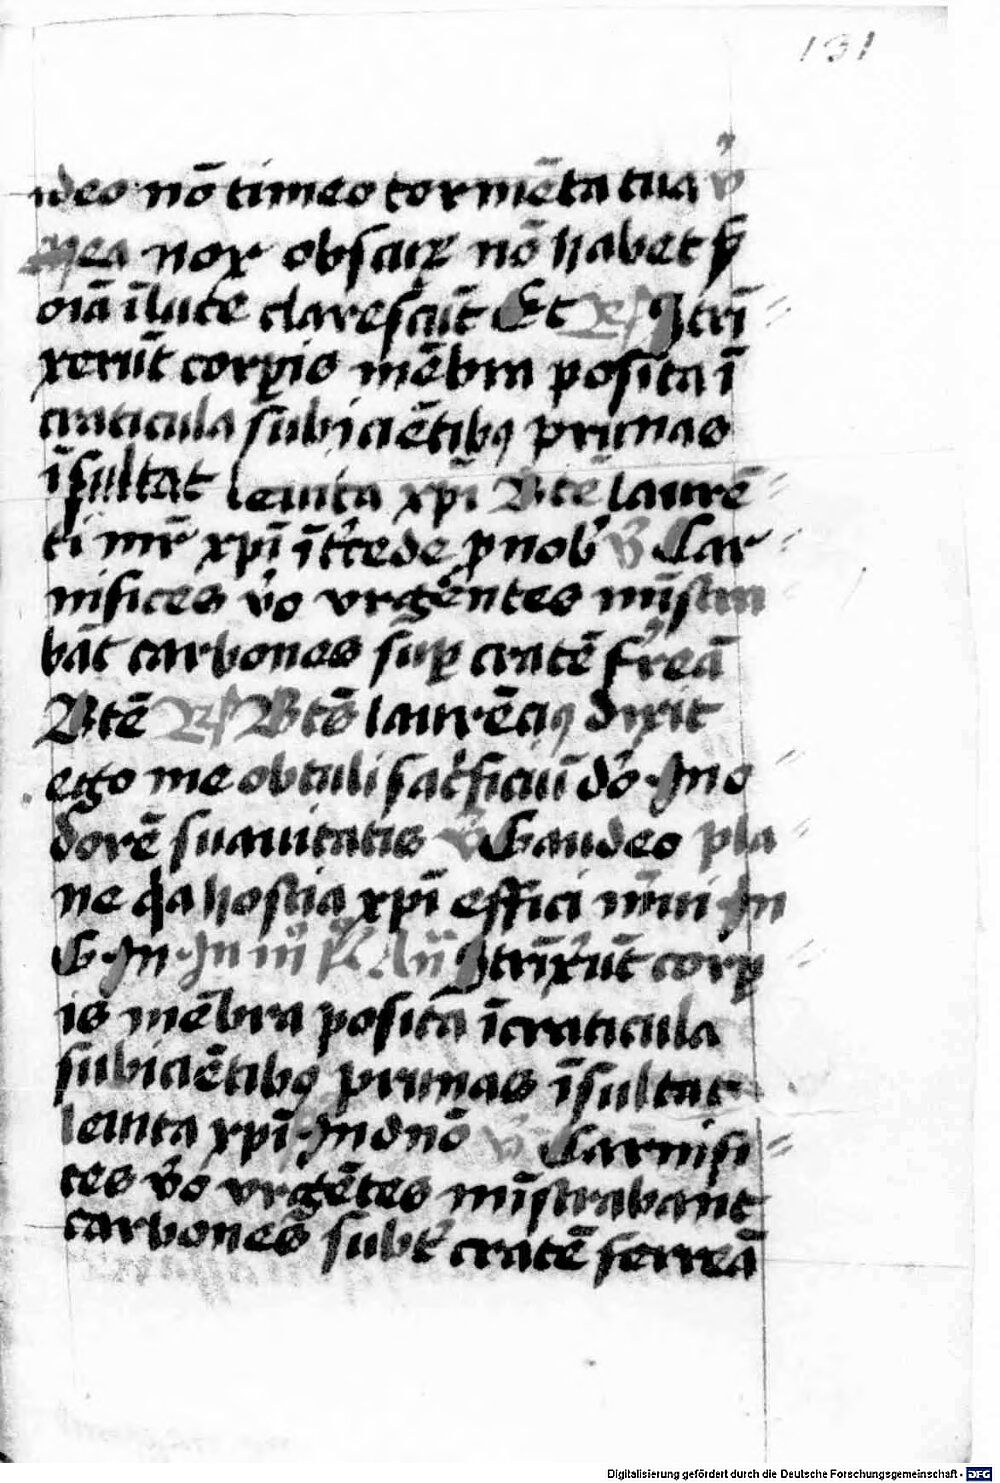 131
ideo nō timeo tormēta tua v̄
mea nox obscuꝝ nō habet ſꝫ
oīa ī luce clareſcūt Et R̸ ItrĪ
xerūt corꝑis mēbra poſita ī
craticula ſubiciētibꝯ prunas
īſultat leuita xp̄i Btē laurē
ti mr̄ xp̄i īt̄cede ꝓ nob̄ v̄ Car
nifices v̄o vrgentes miniſtra
bāt carbones ſuꝑ cratē ferreā
Btē R̸ Btē laurēciꝯ dixit
ego me obtuli ſacͥficiū dō In o
dorē ſuauitatis v̄ Gaudeo pla
ne qͥa hoſtia xp̄i effici merui In
G In In Itrīxerūt corꝑ
is mēbra poſita ī craticula
ſubiciētibꝯ prunas īſultat
leuita xp̄i In dno v̄ Carnifi
ces v̄o vrgētes miniſtrabant
carbones ſubt̄ cratē ferreā
Digitalisierung gefördert durch die Deutsche Forschungsgemeinschaft - DFG